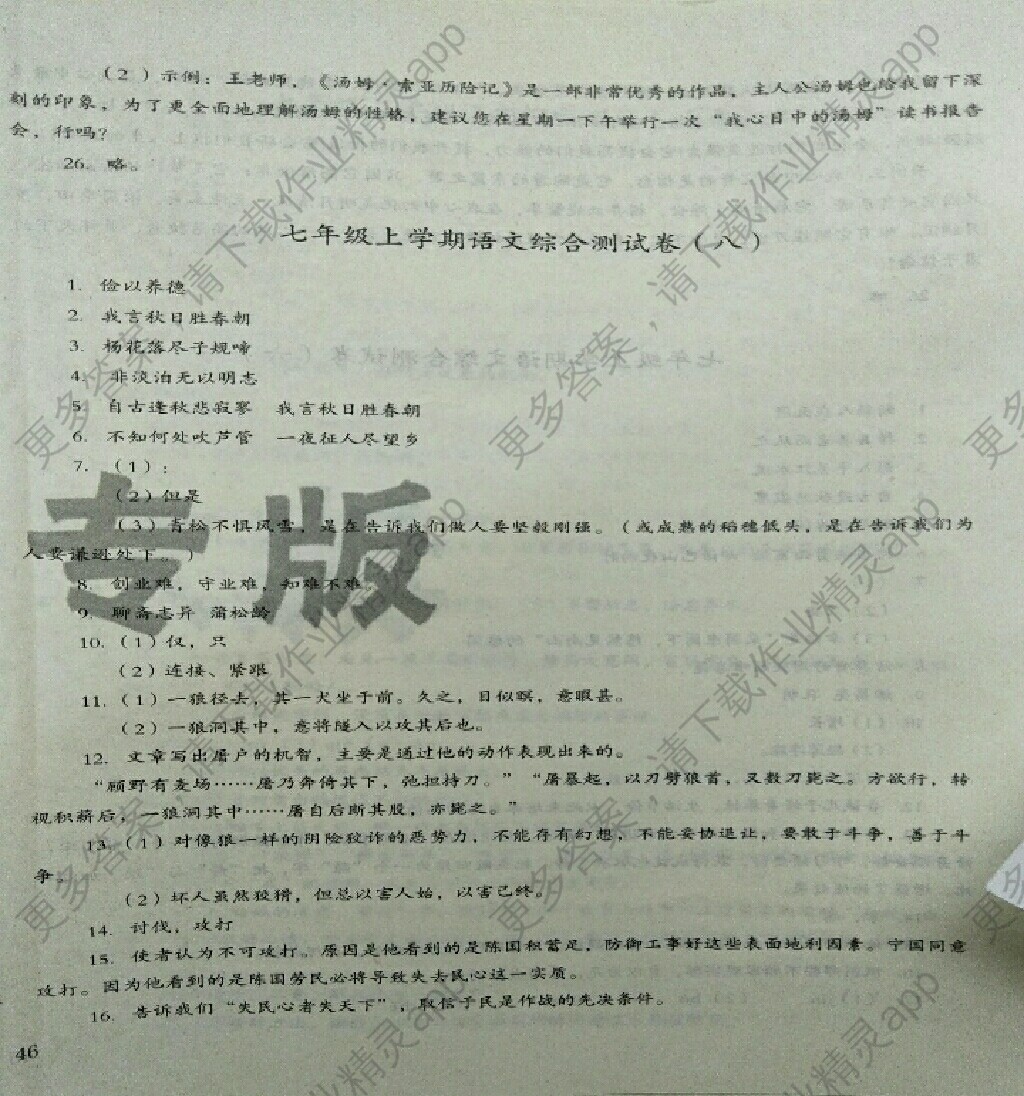 （2）示例：王老师，《汤姆·索亚历险记》是一部非常优秀的作品，主人公汤姆也给我留下深
刻的印象，为了更全面地理解汤姆的性格，建议您在星期一下午举行一次“我心目中的汤姆”读书报告
会，行吗？
26. 略。
七年级上学期语文综合测试卷（八）
1. 俭以养德
2. 我言秋日胜春朝
3. 杨花落尽子规啼
4. 非淡泊无以明志
5. 自古逢秋悲寂寥 我言秋日胜春朝
6. 不知何处吹芦管 一夜征人尽望乡
7. （1）：
（2）但是
（3）青松不惧风雪，是在告诉我们做人要坚毅刚强。（或成熟的稻穗低头，是在告诉我们为
人要谦逊处下。）
8. 创业难，守业难，知难不难。
9. 聊斋志异 蒲松龄
10. （1）仅，只
（2）连接、紧跟
11. （1）一狼径去，其一犬坐于前。久之，目似瞑，意暇甚。
（2）一狼洞其中，意将隧入以攻其后也。
12. 文章写出屠户的机智，主要是通过他的动作表现出来的。
“顾野有麦场……屠乃奔倚其下，弛担持刀。”“屠暴起，以刀劈狼首，又数刀毙之。方欲行，转
视积薪后，一狼洞其中……屠自后断其股，亦毙之。”
13. （1）对像狼一样的阴险狡诈的恶势力，不能存有幻想，不能妥协退让，要敢于斗争，善于斗
争。
（2）坏人虽然狡猾，但总以害人始，以害己终。
14. 讨伐，攻打
15. 使者认为不可攻打。原因是他看到的是陈国积蓄足，防御工事好这些表面地利因素。宁国同意
攻打。因为他看到的是陈国劳民必将导致失去民心这一实质。
16. 告诉我们“失民心者失天下”，取信于民是作战的先决条件。
46
专版
更多答案，请下载作业精灵app
更多答案，请下载作业精灵app
更多答案，请下载作业精灵app
更多答案，请下载作业精灵app